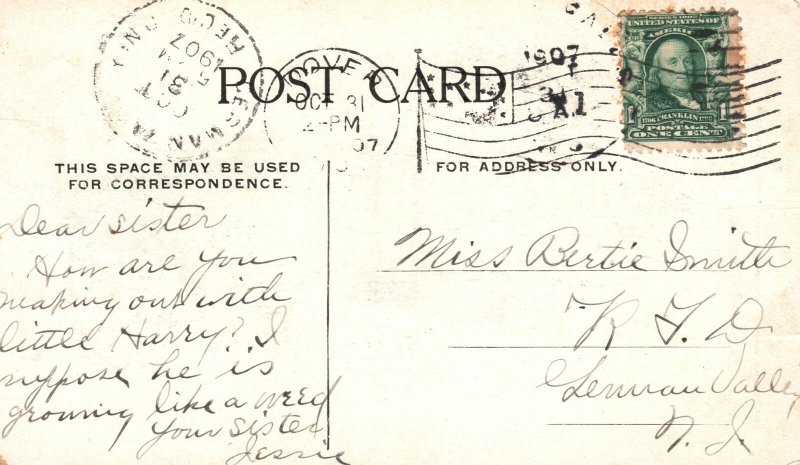 POST CARD
THIS SPACE MAY BE USED
FOR CORRESPONDENCE.
FOR ADDRESS ONLY.
DOVER
OCT 31
2-PM
REC'D
1907
OCT
31
1907
SERIES 1902
UNITED STATES OF
AMERICA
1706 FRANKLIN 1790
POSTAGE
1 ONE CENT 1
Dear Sister
How are you
making out with
little Harry? I
suppose he is
growing like a weed
your sister
Jessie
Miss Bertie Smith
R F D
German Valley
N. J.